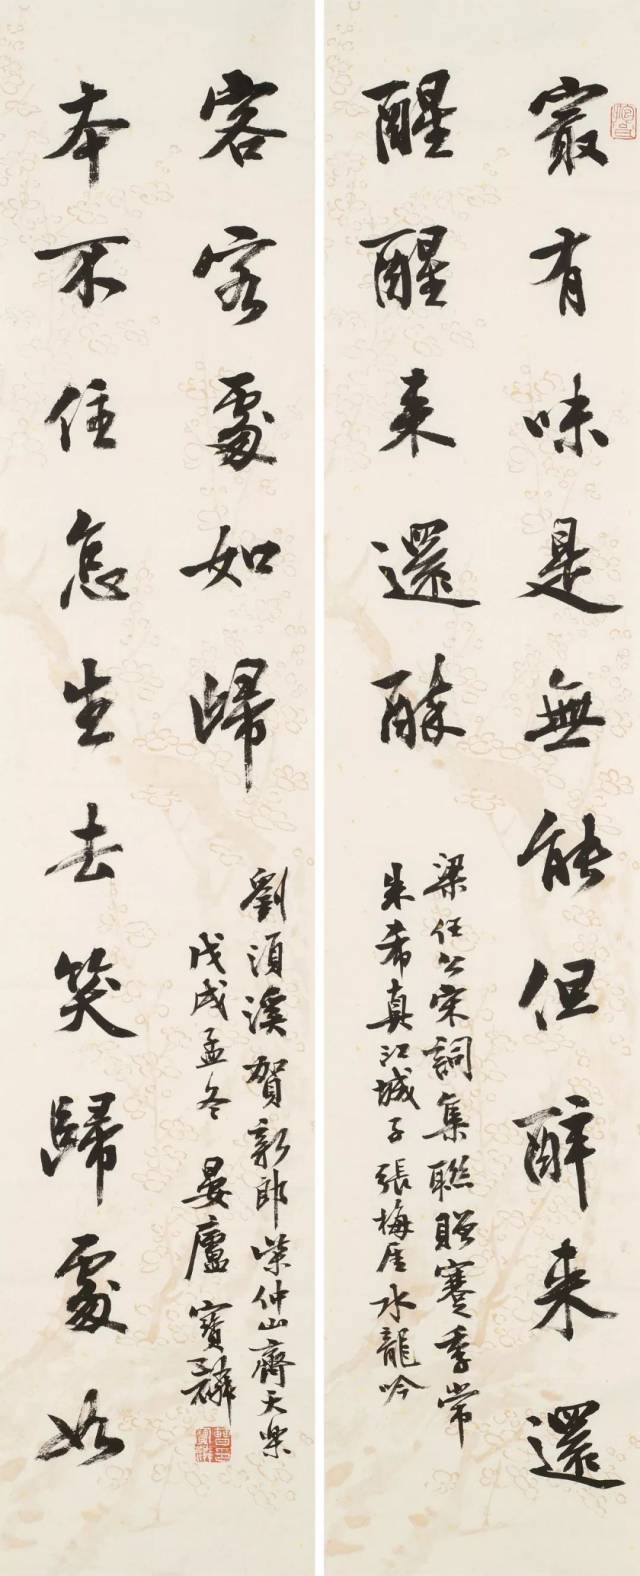 㝡有味是無能但醉來還
醒醒來還醉
梁任公宋詞集聯贈蹇季常
朱希真江城子張梅厓水龍吟
本不住怎生去笑歸處如
客客處如歸
劉湏溪賀新郎柴仲山齊天樂
戊戌孟冬 晏廬寶麟